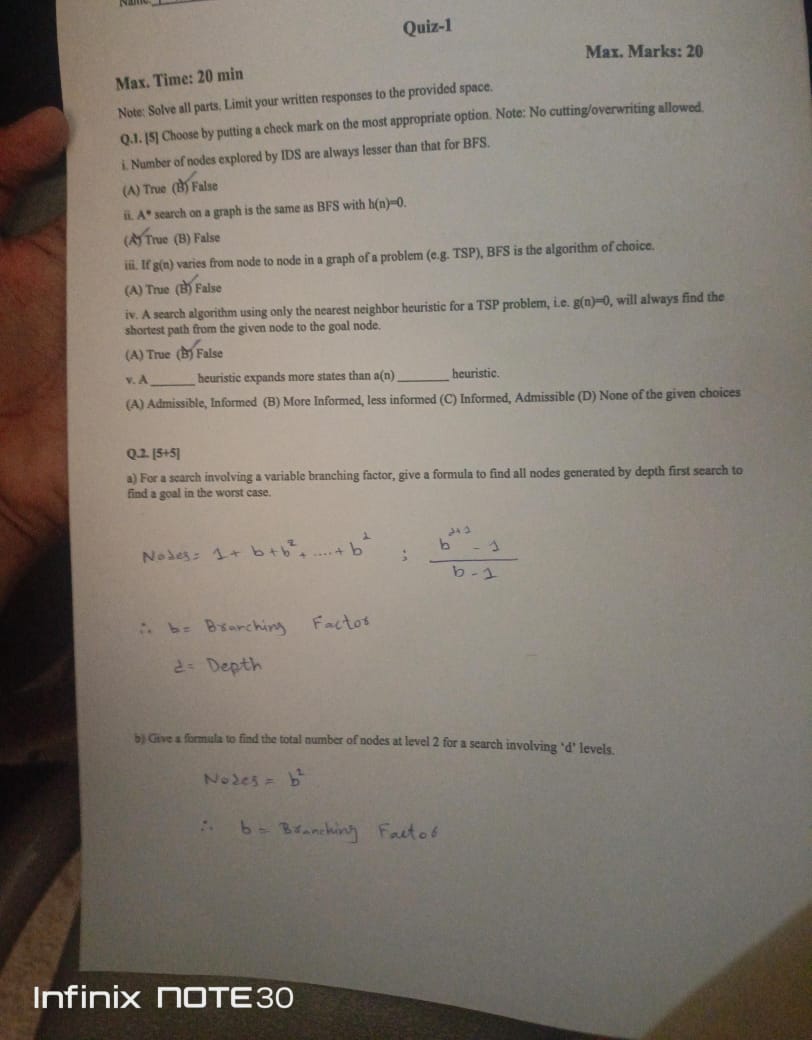 Quiz-1
Max. Marks: 20
Max. Time: 20 min
Note: Solve all parts. Limit your written responses to the provided space.
Q.1. [5] Choose by putting a check mark on the most appropriate option. Note: No cutting/overwriting allowed.
i. Number of nodes explored by IDS are always lesser than that for BFS.
(A) True (B) False
ii. A* search on a graph is the same as BFS with h(n)=0.
(A) True (B) False
iii. If g(n) varies from node to node in a graph of a problem (e.g. TSP), BFS is the algorithm of choice.
(A) True (B) False
iv. A search algorithm using only the nearest neighbor heuristic for a TSP problem, i.e. g(n)=0, will always find the
shortest path from the given node to the goal node.
(A) True (B) False
v. A ______ heuristic expands more states than a(n) _______ heuristic.
(A) Admissible, Informed (B) More Informed, less informed (C) Informed, Admissible (D) None of the given choices
Q.2. [5+5]
a) For a search involving a variable branching factor, give a formula to find all nodes generated by depth first search to
find a goal in the worst case.
Nodes = 1 + b + b² + .... + b^d ; b^(d+1) - 1 / b - 1
∴ b = Branching Factor
d = Depth
b) Give a formula to find the total number of nodes at level 2 for a search involving 'd' levels.
Nodes = b²
∴ b = Branching Factor
Infinix NOTE 30